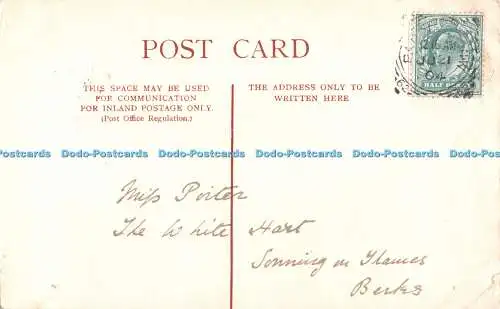 POST CARD
THIS SPACE MAY BE USED
FOR COMMUNICATION
FOR INLAND POSTAGE ONLY.
(Post Office Regulation.)
THE ADDRESS ONLY TO BE
WRITTEN HERE
JU 21
04
HALF
Dodo-Postcards Dodo-Postcards Dodo-Postcards Dodo-Postcards Dodo-Postcards
Miss Porter
The White Hart
Sonning on Thames
Berks